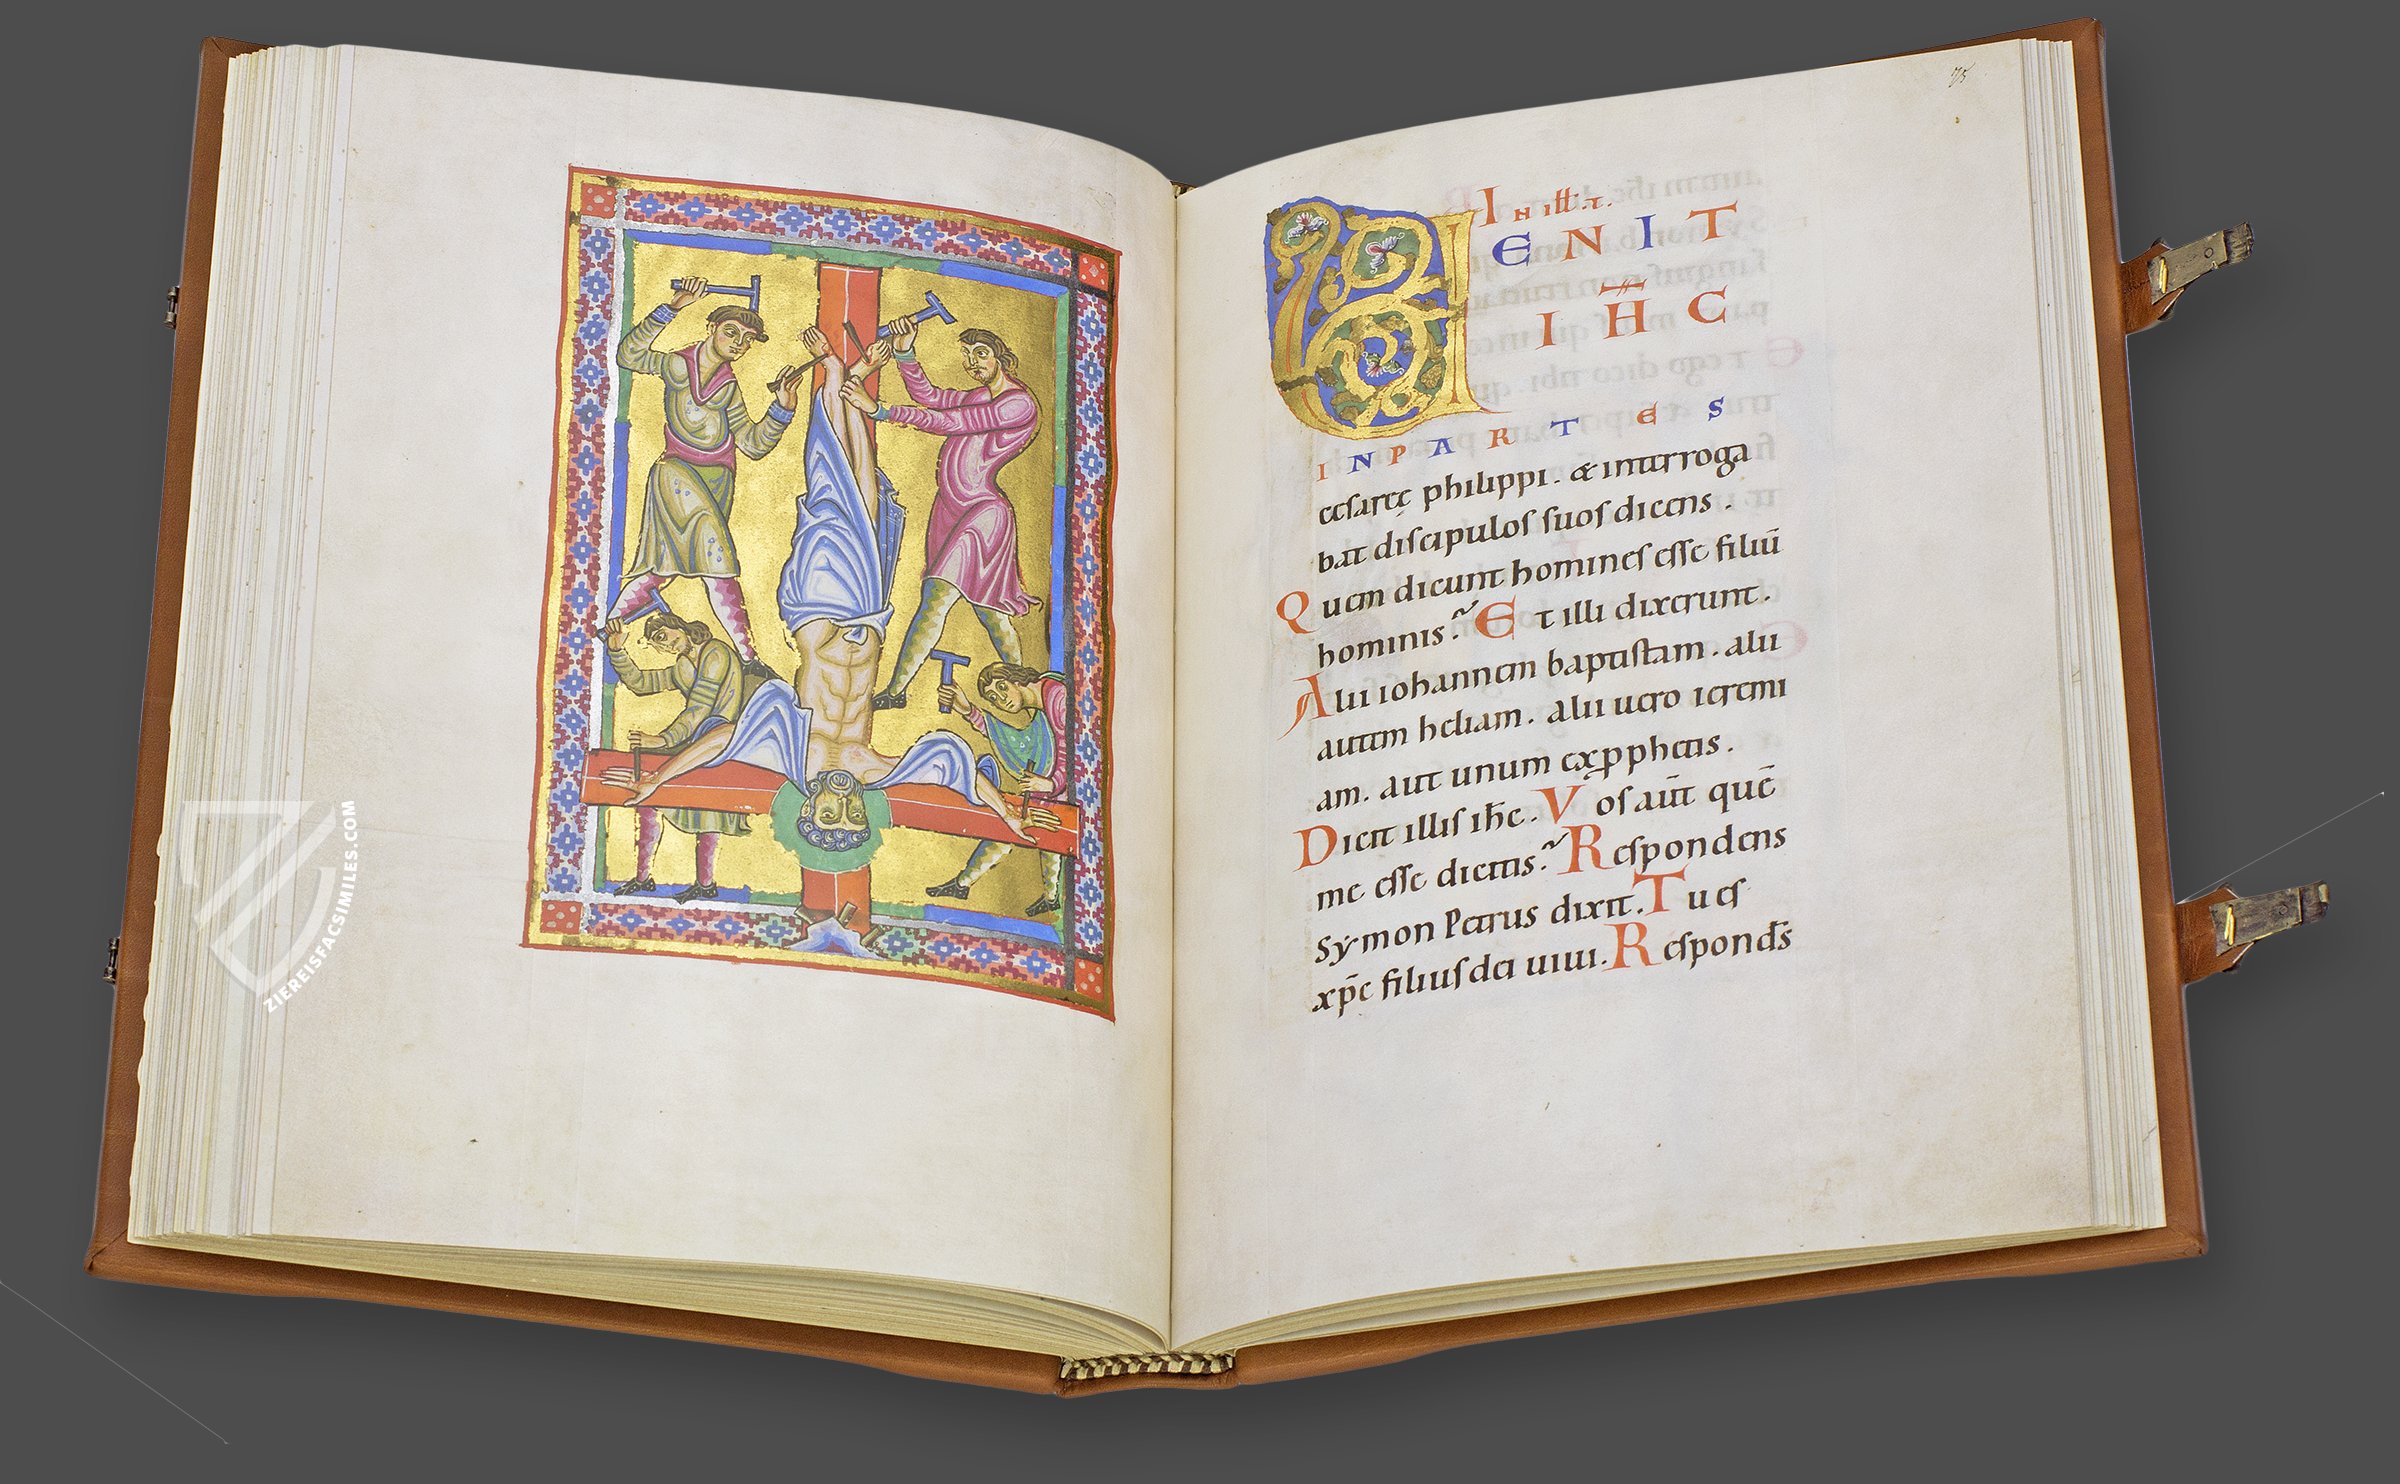 ZIEREISFACSIMILES.COM
75
IN ill. t.
VENIT
IHC
INPARTES
cesareę philippi. & interroga
bat discipulos suos dicens.
Quem dicunt homines esse filiū
hominis? Et illi dixerunt.
Alii iohannem baptistam. alii
autem heliam. alii uero ieremi
am. aut unum ex pphetis.
Dicit illis ihc. Vos aūt quē
me esse dicitis? Respondens
Symon Petrus dixit. Tu es
xp̄c filius dei uiui. Respond̄s